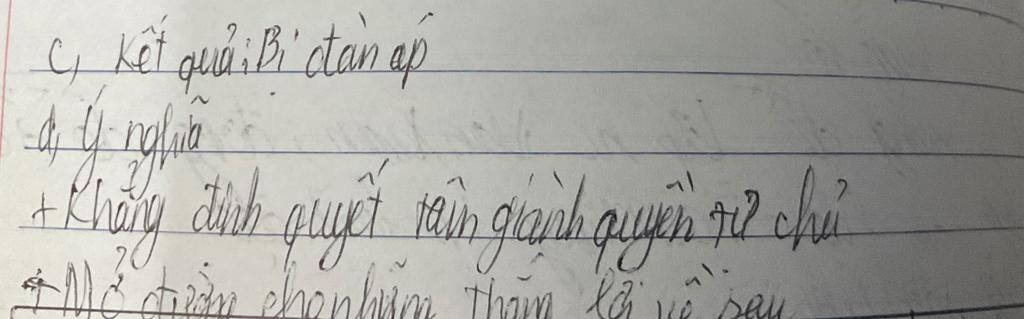 c, Kết quả: Bị đàn áp
d, Ý nghĩa
+ Khẳng định quyết tâm giành quyền tự chủ
+ Mở đường cho những thắng lợi về sau